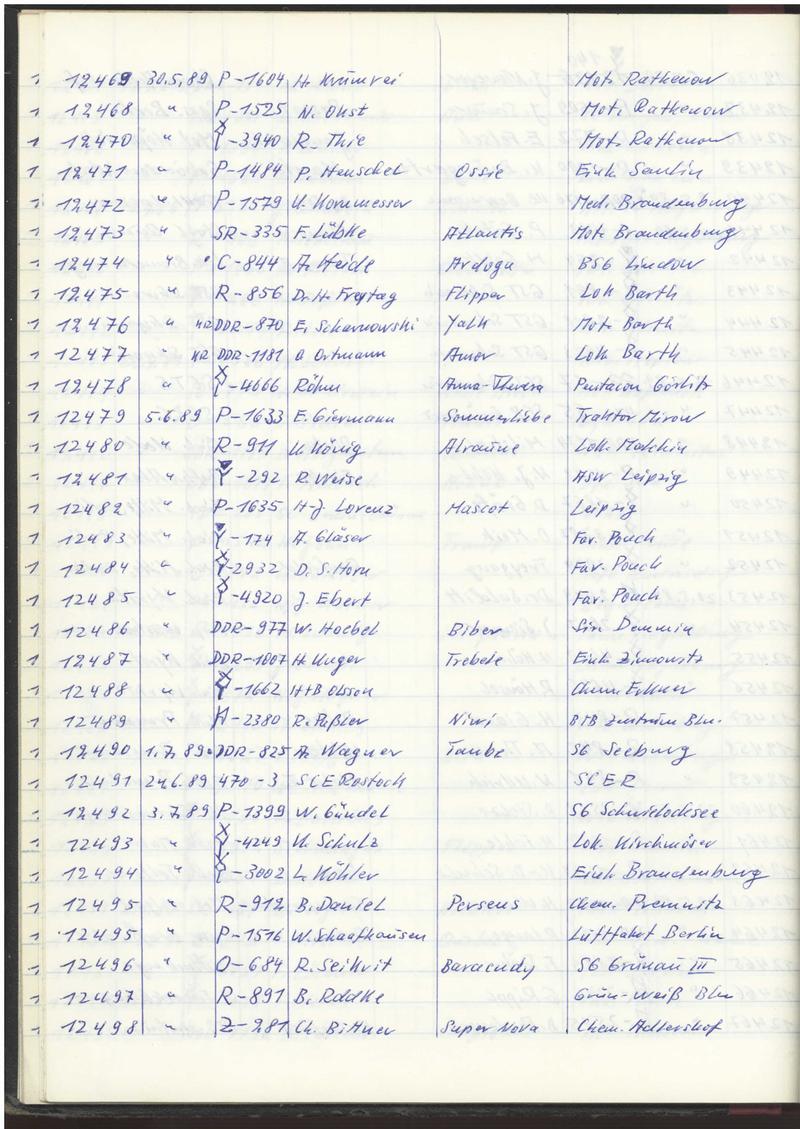 1 12469 30.5.89 P-1604 H. Krümrei Mot. Rathenow
1 12468 " P-1525 N. Ohst Mot. Rathenow
1 12470 " Y-3940 R. Thie Mot. Rathenow
1 12471 " P-1484 P. Henschel Ossie Einh.
1 12472 " P-1579 U. Kornmesser Med. Brandenburg
1 12473 " SR-335 F. Lübke Atlantis Mot. Brandenburg
1 12474 " C-844 A. Heide Ardoga BSG Lindow
1 12475 " R-856 Dr. H. Freytag Flipper Lok Barth
1 12476 " KR DDR-870 E. Scharnowski Yalk Mot. Barth
1 12477 " KR DDR-1181 O Ortmann Amor Lok Barth
1 12478 " Y-4666 Röhn Anna-Theresa Pentacon Görlitz
1 12479 5.6.89 P-1633 E. Giermann Sommerliebe Traktor Mirow
1 12480 " R-911 U. König Alraune Lok. Malchin
1 12481 " Y-292 R. Weise ASW Leipzig
1 12482 " P-1635 H-J. Lorenz Mascot Leipzig
1 12483 " Y-174 A. Gläser Far. Pouch
1 12484 " Y-2932 D. S. Horn Far. Pouch
1 12485 " Y-4920 J. Ebert Far. Pouch
1 12486 " DDR-977 W. Hoebel Biber Demmin
1 12487 " DDR-1007 H. Unger Trebele Einh. Zinnowitz
1 12488 " Y-1662 H+B Olsson Chem. Erkner
1 12489 " H-2380 R. Päßler Niwi BTB Zentrum Bln.
1 12490 1.7.89 DDR-825 A. Wagner Taube SG Seeburg
1 12491 24.6.89 470-3 SCE Rostock SCER
1 12492 3.7.89 P-1399 W. Gündel SG Schwielochsee
1 12493 " Y-4249 U. Schulz Lok. Kirchmöser
1 12494 " Y-3002 L. Köhler Einh. Brandenburg
1 12495 " R-912 B. Daniel Perseus Chem. Premnitz
1 12495 " P-1516 W. Schaafhausen Luftfahrt Berlin
1 12496 " O-684 R. Seikrit Baracudy SG Grünau III
1 12497 " R-891 B. Radke Grün-Weiß Bln
1 12498 " Z-281 Ch. Bittner Super Nova Chem. Adlershof